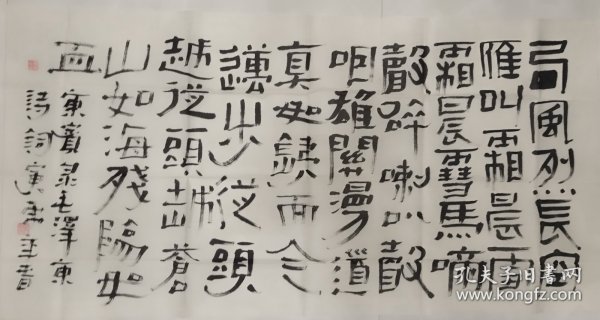 西風烈長空
雁叫霜晨
霜晨馬
聲碎喇叭聲
咽雄關漫道
真如鐵而今
邁步從頭
越從頭越蒼
山如海殘陽如
血
毛澤東
詩詞
孔夫子旧书网
www.kongfz.com